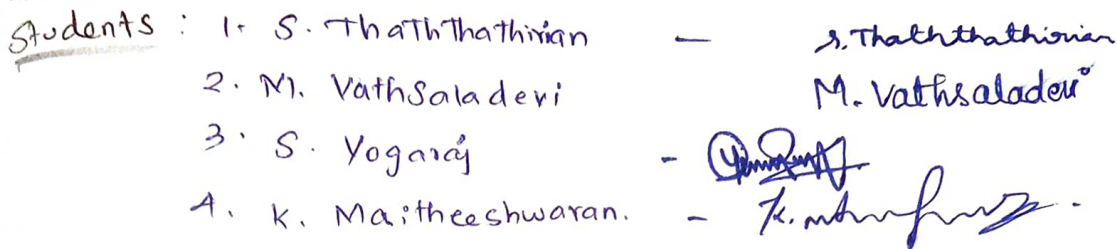 Students : 1. S. Thaththathirian - S. Thaththathirian
2. M. Vathsaladevi M. Vathsaladevi
3. S. Yogaraj -
4. K. Maitheeshwaran. - K.